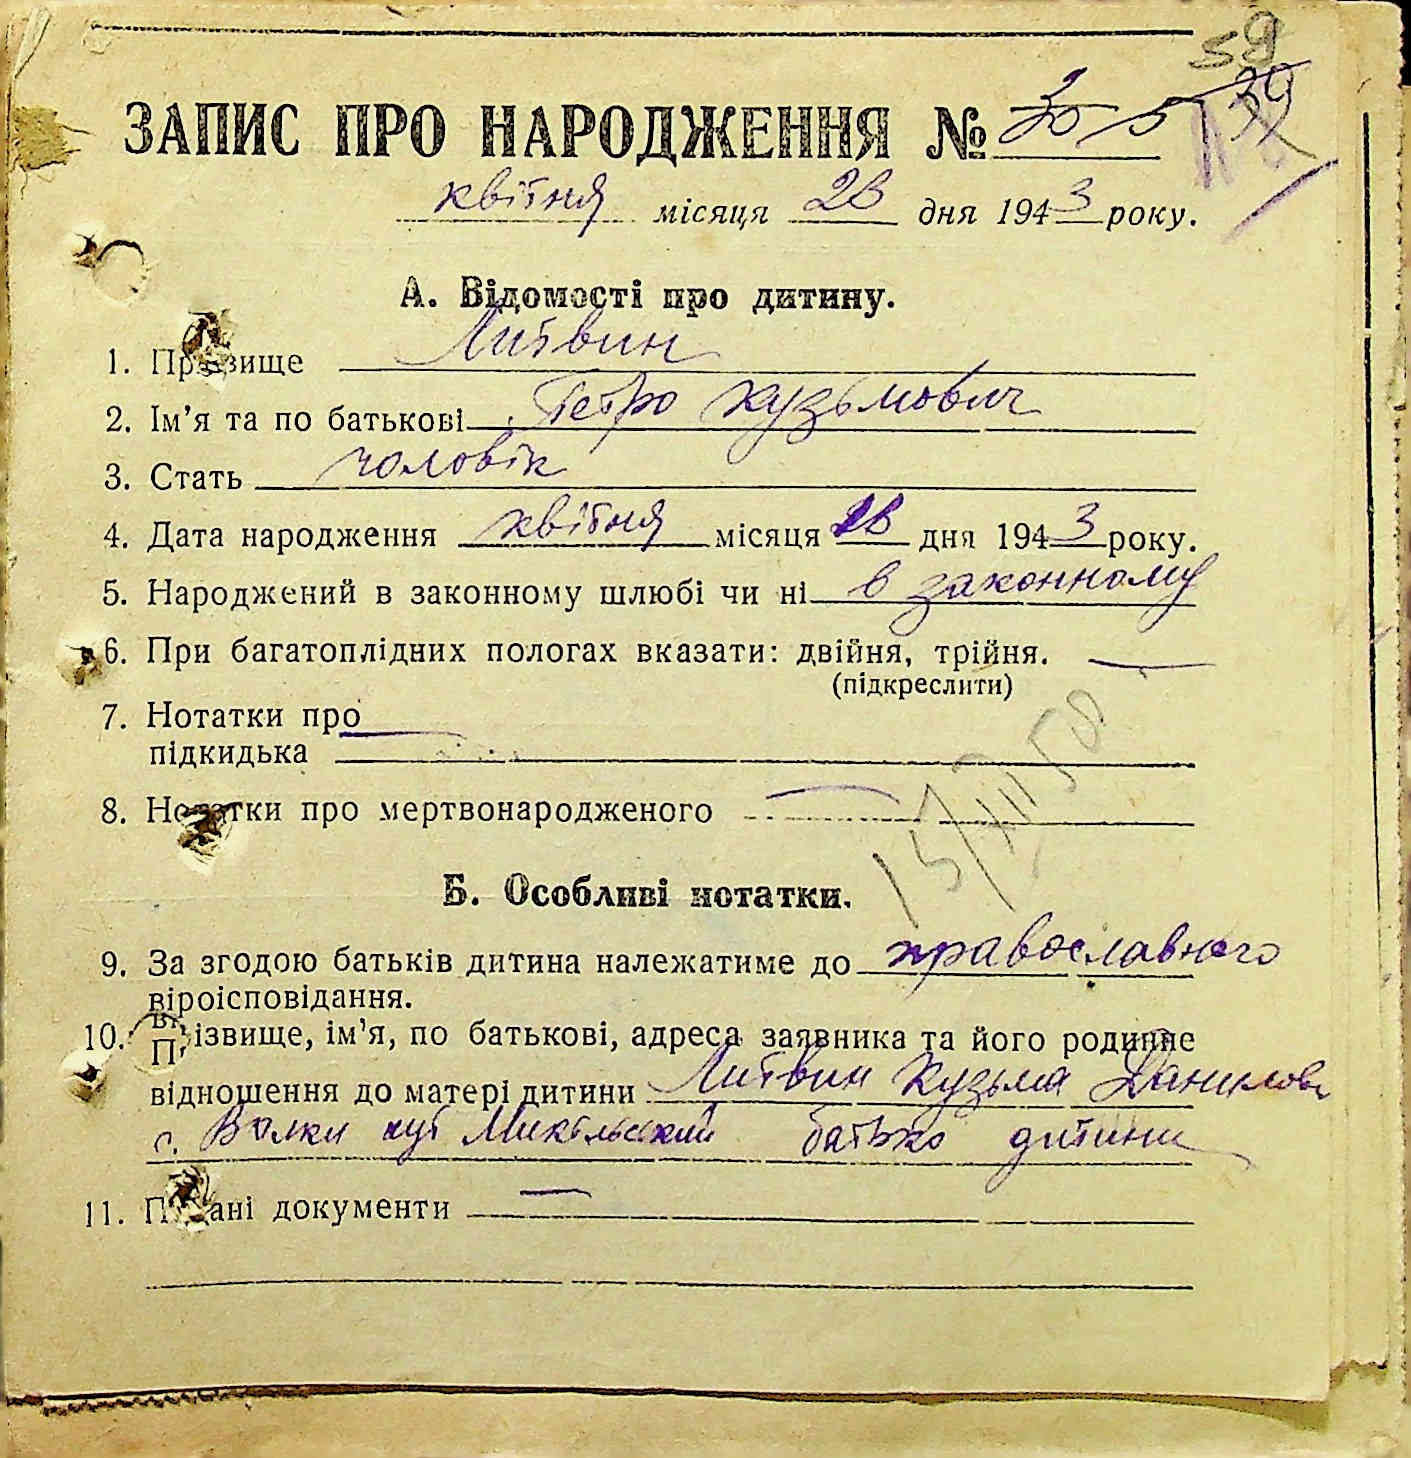 59
ЗАПИС ПРО НАРОДЖЕННЯ № 39
квітня місяця 28 дня 1943 року.
А. Відомості про дитину.
1. Прізвище Литвин
2. Ім'я та по батькові Петро Кузьмович
3. Стать чоловік
4. Дата народження квітня місяця 28 дня 1943 року.
5. Народжений в законному шлюбі чи ні в законному
6. При багатоплідних пологах вказати: двійня, трійня.
(підкреслити)
7. Нотатки про
підкидька
8. Нотатки про мертвонародженого
Б. Особливі нотатки.
9. За згодою батьків дитина належатиме до православного
віроісповідання.
10. Прізвище, ім'я, по батькові, адреса заявника та його родинне
відношення до матері дитини Литвин Кузьма Данилов
с. Валки хут Микольський батько дитини
11. Подані документи